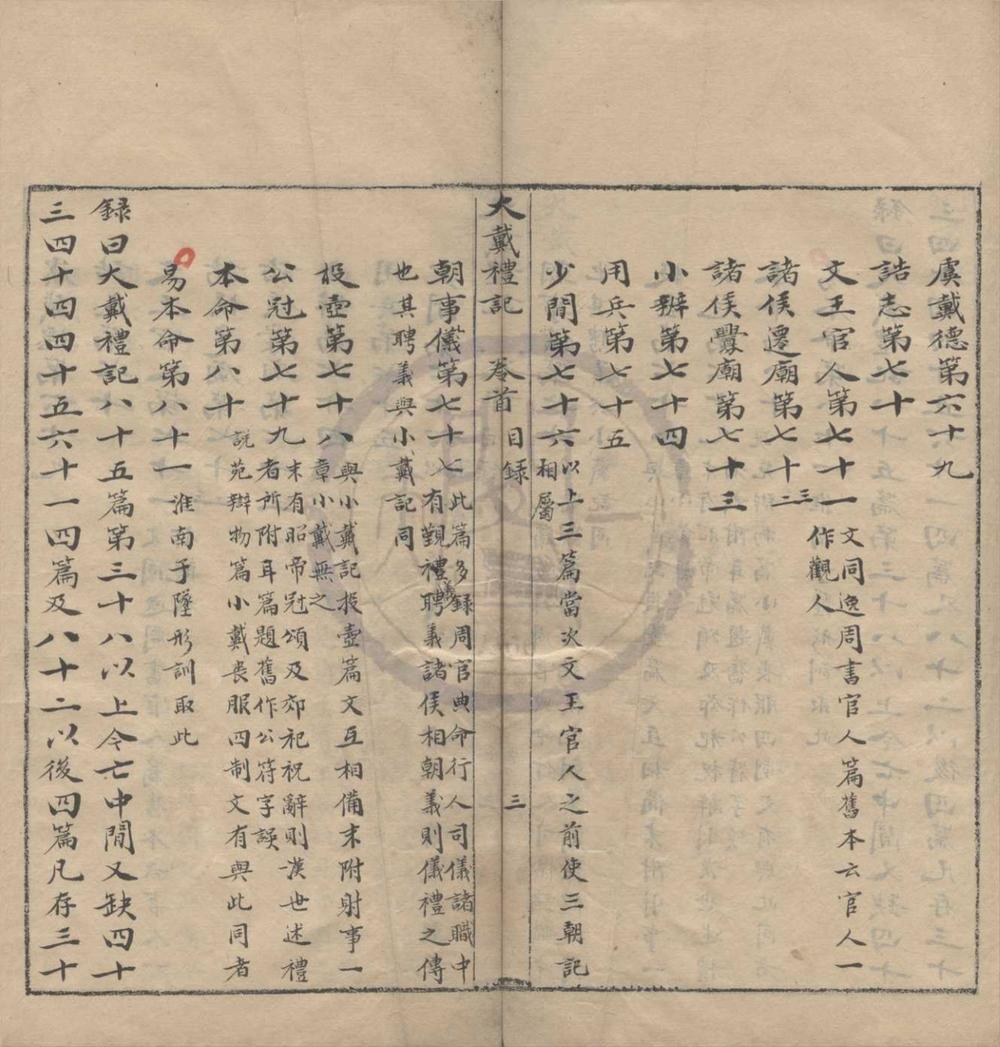 虞戴德第六十九
誥志第七十
文王官人第七十一 文同逸周書官人篇舊本云官人一
作觀人
諸侯遷廟第七十二 三
諸侯釁廟第七十三
小辨第七十四
用兵第七十五
少閒第七十六 以上三篇當次文王官人之前使三朝記
相屬
大戴禮記 卷首 目録 三
朝事儀第七十七 此篇多録周官典命行人司儀諸職中
有覲禮聘義諸侯相朝義則儀禮之傳
也其聘義與小戴記同
投壺第七十八 與小戴記投壺篇文互相備末附射事一
章小戴無之
公冠第七十九 末有昭帝冠頌及郊祀祝辭則漢世述禮
者所附耳篇題舊作公符字誤
本命第八十 說苑辯物篇小戴喪服四制文有與此同者
易本命第八十一 淮南子墬形訓取此
録曰大戴禮記八十五篇第三十八以上今亡中閒又缺四十
三四十四四十五六十一四篇及八十二以後四篇凡存三十